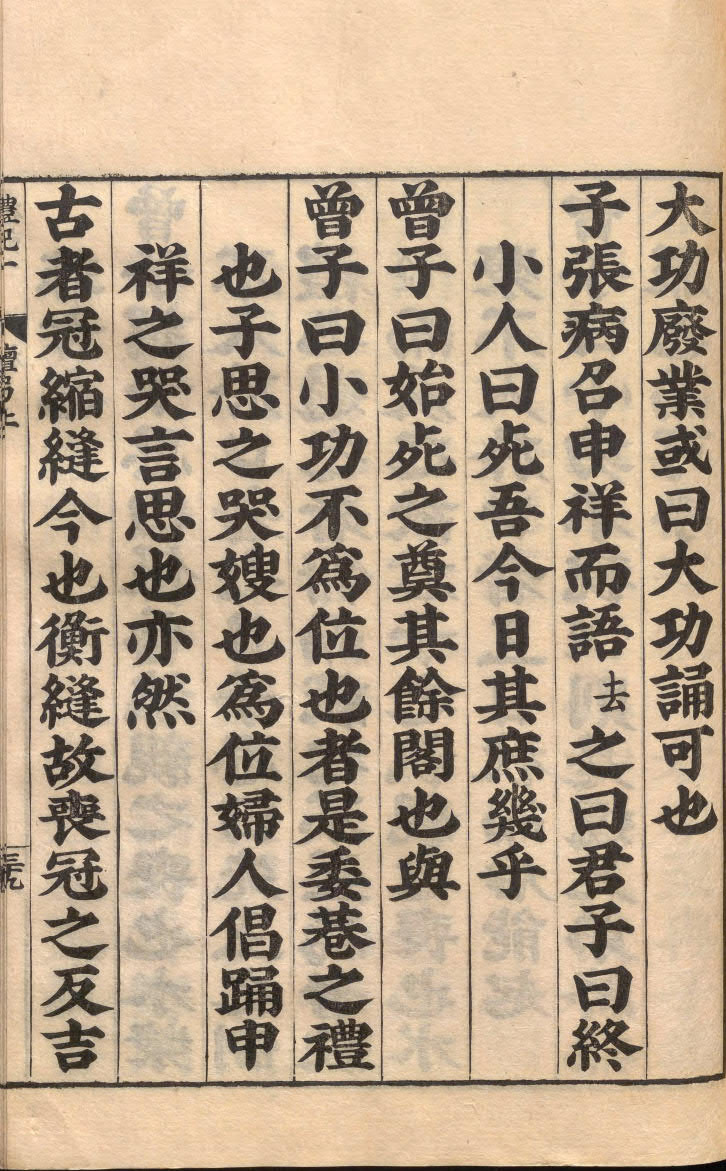 大功廢業或曰大功誦可也
子張病召申祥而語去之曰君子曰終
小人曰死吾今日其庶幾乎
曾子曰始死之奠其餘閣也與
曾子曰小功不爲位也者是委巷之禮
也子思之哭嫂也爲位婦人倡踊申
祥之哭言思也亦然
古者冠縮縫今也衡縫故喪冠之反吉
禮記一
檀弓上
三九